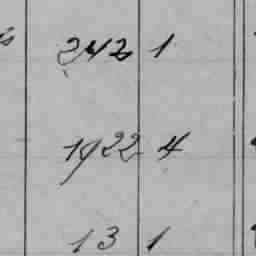 242 1
1922 4
13 1